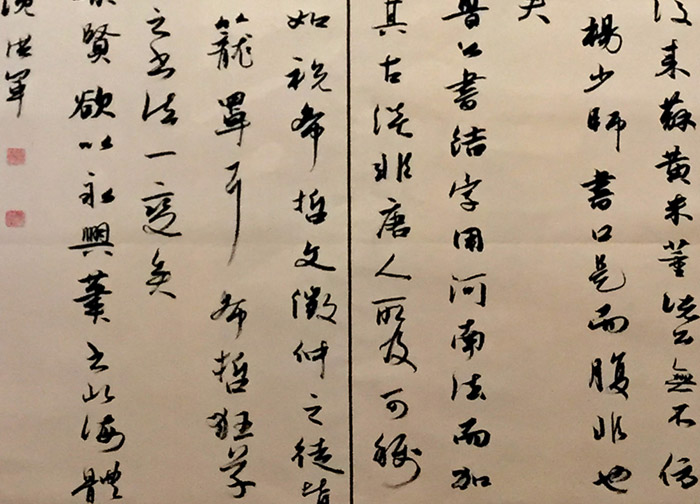 後来蘇黄米董諸公無不低
楊少師書口是而腹非也
矣
晋公書結字用河南法而加
其古淡非唐人所及可
如祝希哲文徵仲之徒皆
籠罩耳希哲狂草
之書法一変矣
賢欲以永興筆書北海體